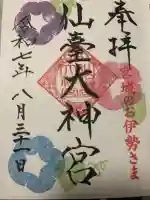 奉拝
宮城のお伊勢さま
仙臺大神宮
令和七年八月三十一日